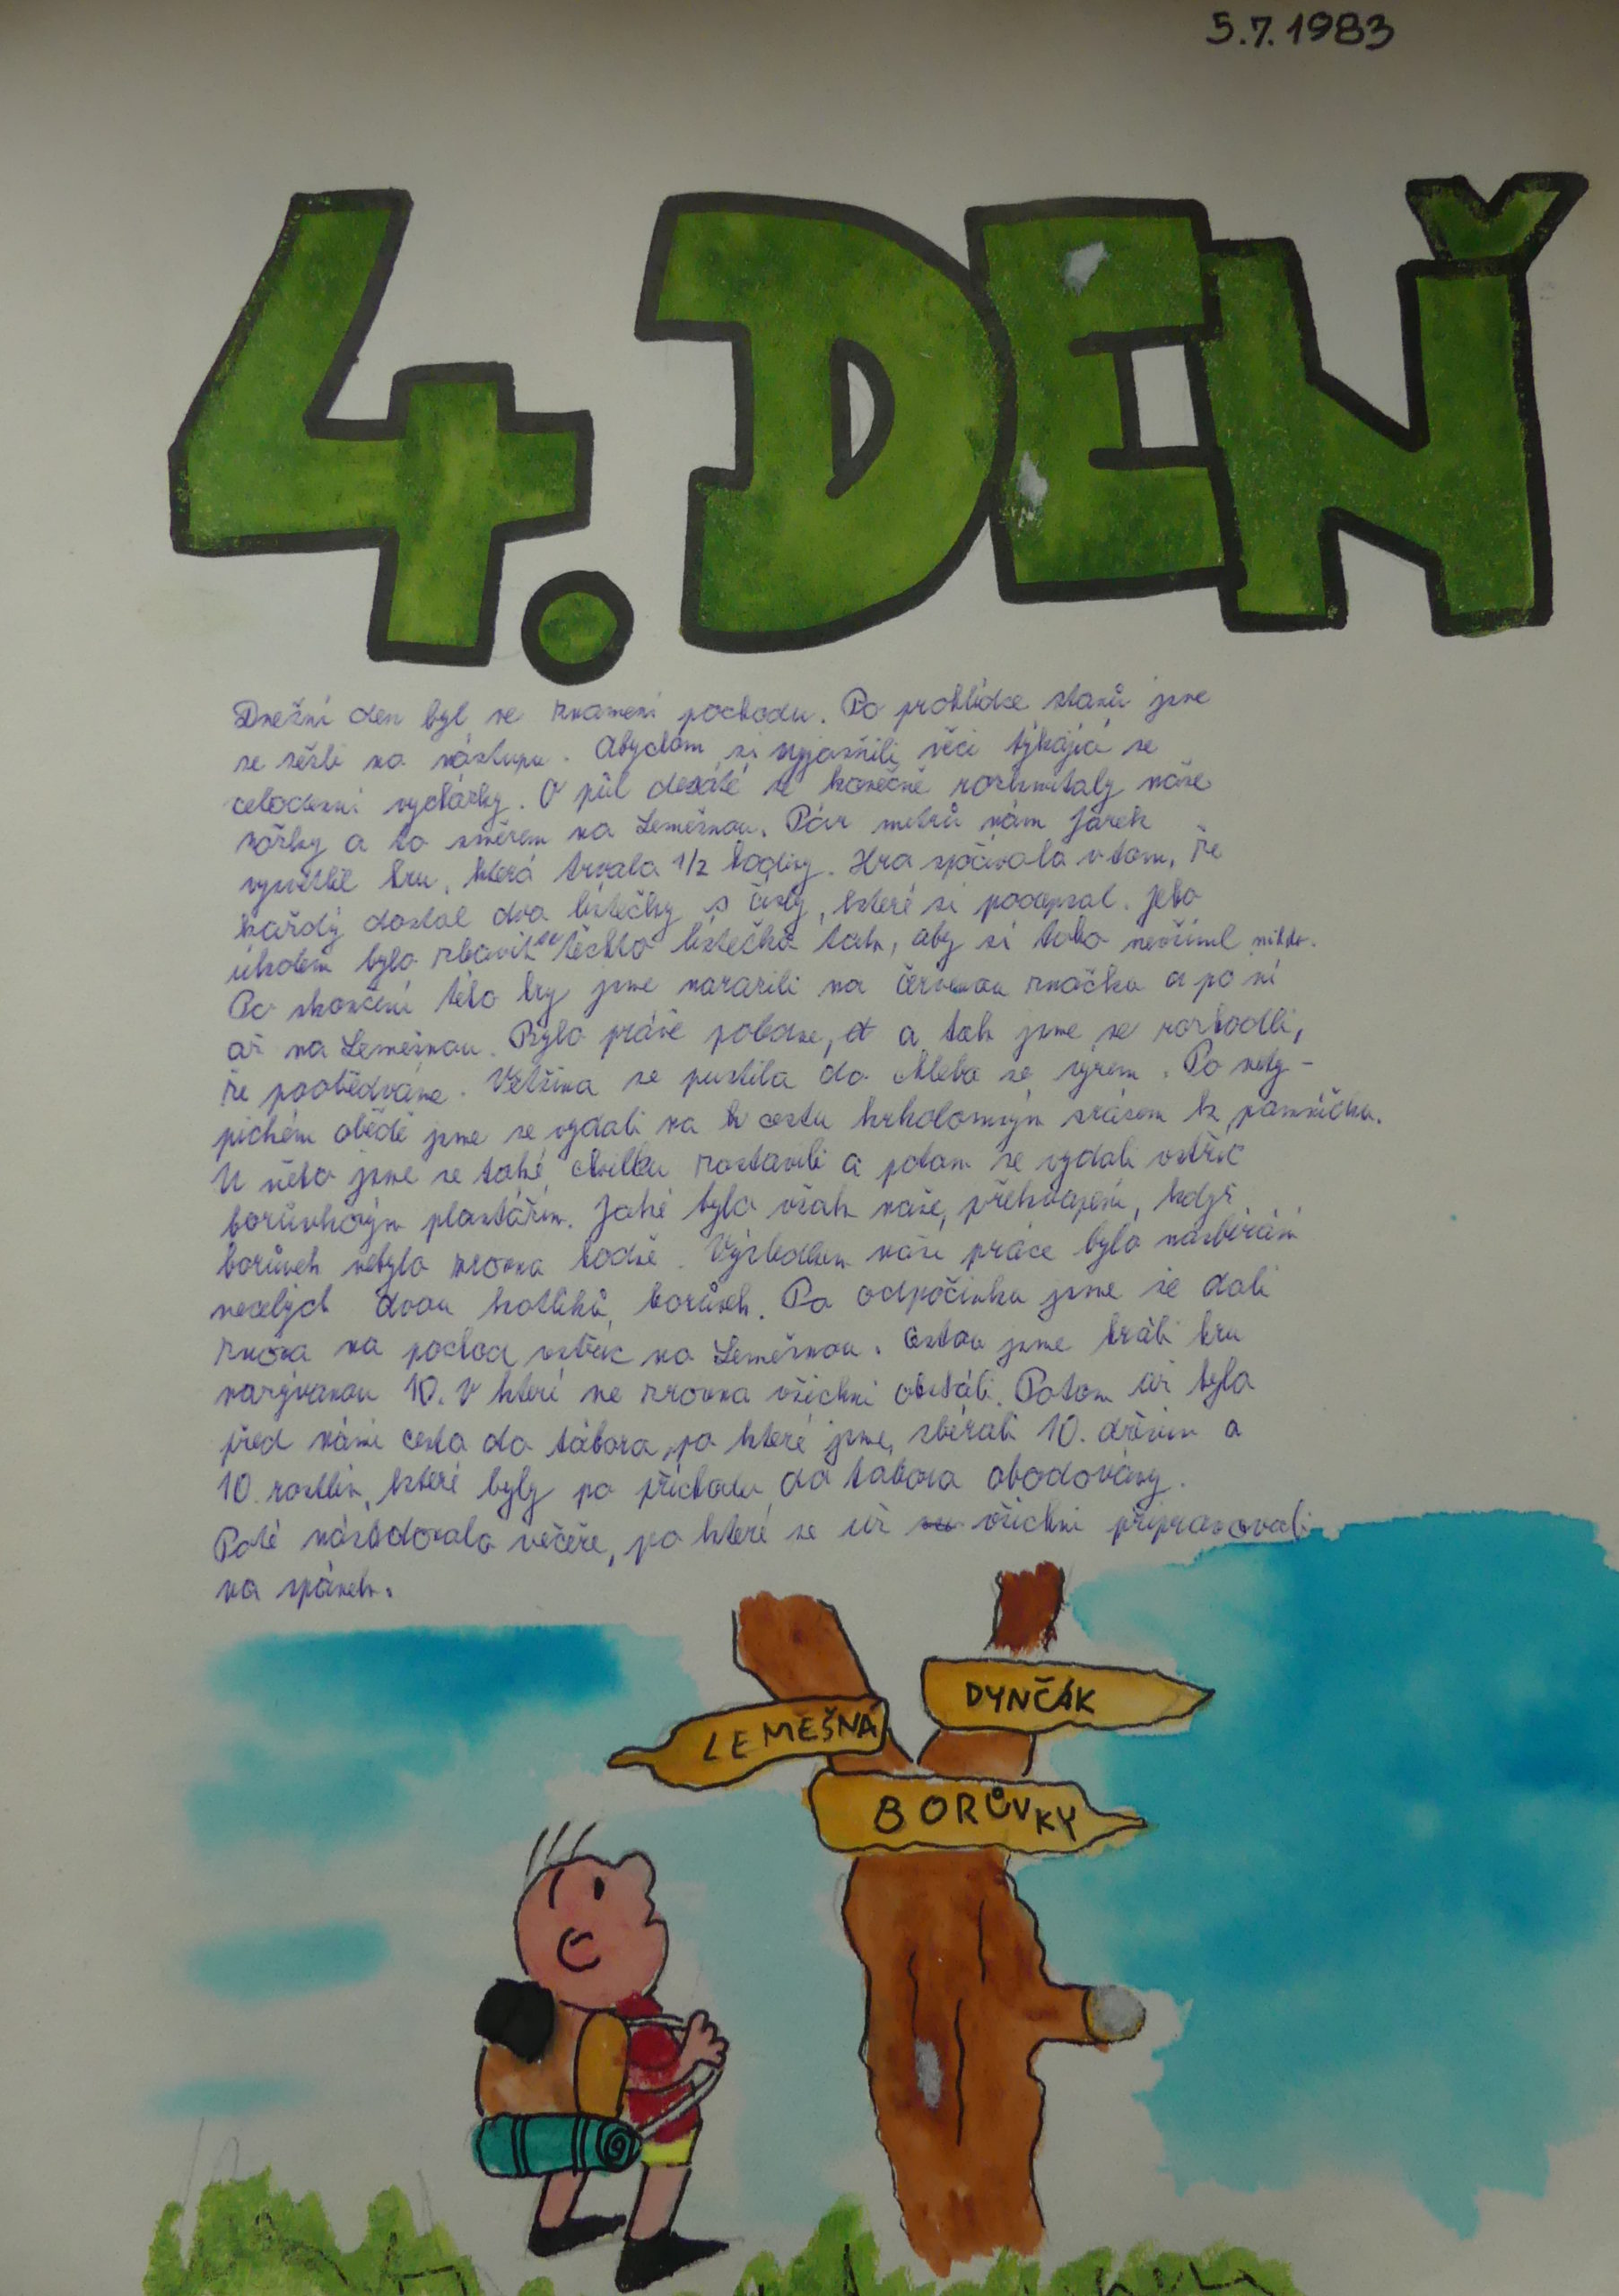 5.7.1983
4. DEŇ
Dnešní den byl ve znamení pochodu. Po prohlídce stanů jsme
se sešli na nástupu. Abychom si vyjasnili věci týkající se
celodenní vycházky. O půl desáté se konečně rozkmitaly naše
nôžky a to směrem na Lemešnou. Pár metrů nám Jarek
vysvětlil hru, která trvala 1/2 hodiny. Hra spočívala v tom, že
každý dostal dva lístečky s čísly, které si podepsal. Jeho
úkolem bylo zbavit se těchto lístečků tak, aby si toho nevšiml nikdo.
Po skončení této hry jsme narazili na červenou značku a po ní
až na Lemešnou. Bylo právě poledne, a tak jsme se rozhodli,
že poobědváme. Většina se pustila do chleba se sýrem. Po nety-
pickém obědě jsme se vydali na cestu krkolomným srázem k pomníčku.
U něho jsme se také chvilku zastavili a potom se vydali vstříc
borůvkovým plantážím. Jaké bylo však naše překvapení, když
borůvek nebylo zrovna hodně. Výsledkem naší práce bylo nasbírání
necelých dvou kotlíků borůvek. Po odpočinku jsme se dali
znova na pochod vstříc na Lemešnou. Cestou jsme hráli hru
nazývanou 10. v které ne zrovna všichni obstáli. Potom už byla
před námi cesta do tábora, po které jsme sbírali 10. dřevin a
10. rostlin, které byly po příchodu do tábora obodovány.
Poté následovala večeře, po které se už všichni připravovali
na spánek.
DYNČÁK
LEMEŠNÁ
BORŮVKY